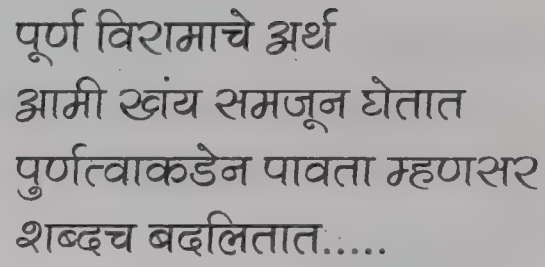 पूर्ण विरामाचे अर्थ
आमी खंय समजून घेतात
पुर्णत्वाकडेन पावता म्हणसर
शब्दच बदलितात.....